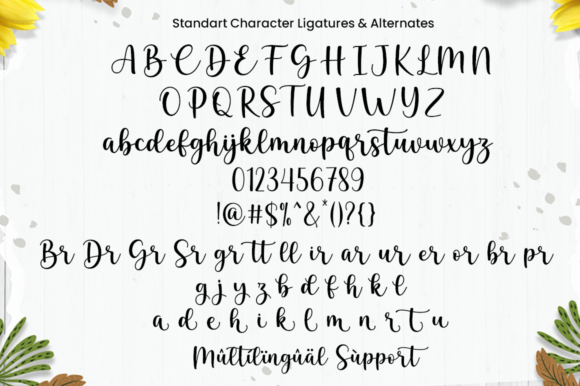 Standart Character Ligatures & Alternates
A B C D E F G H I J K L M N
O P Q R S T U V W Y Z
abcdefghijklmnopqrstuvwxyz
0123456789
!@#$%^&*()?{}
Br Dr Gr Sr gr tt ll ir ar ur er or br pr
g j y z b d f h k l
a d e h i k l m n r t u
Mûltïlïngûäl Sùpport